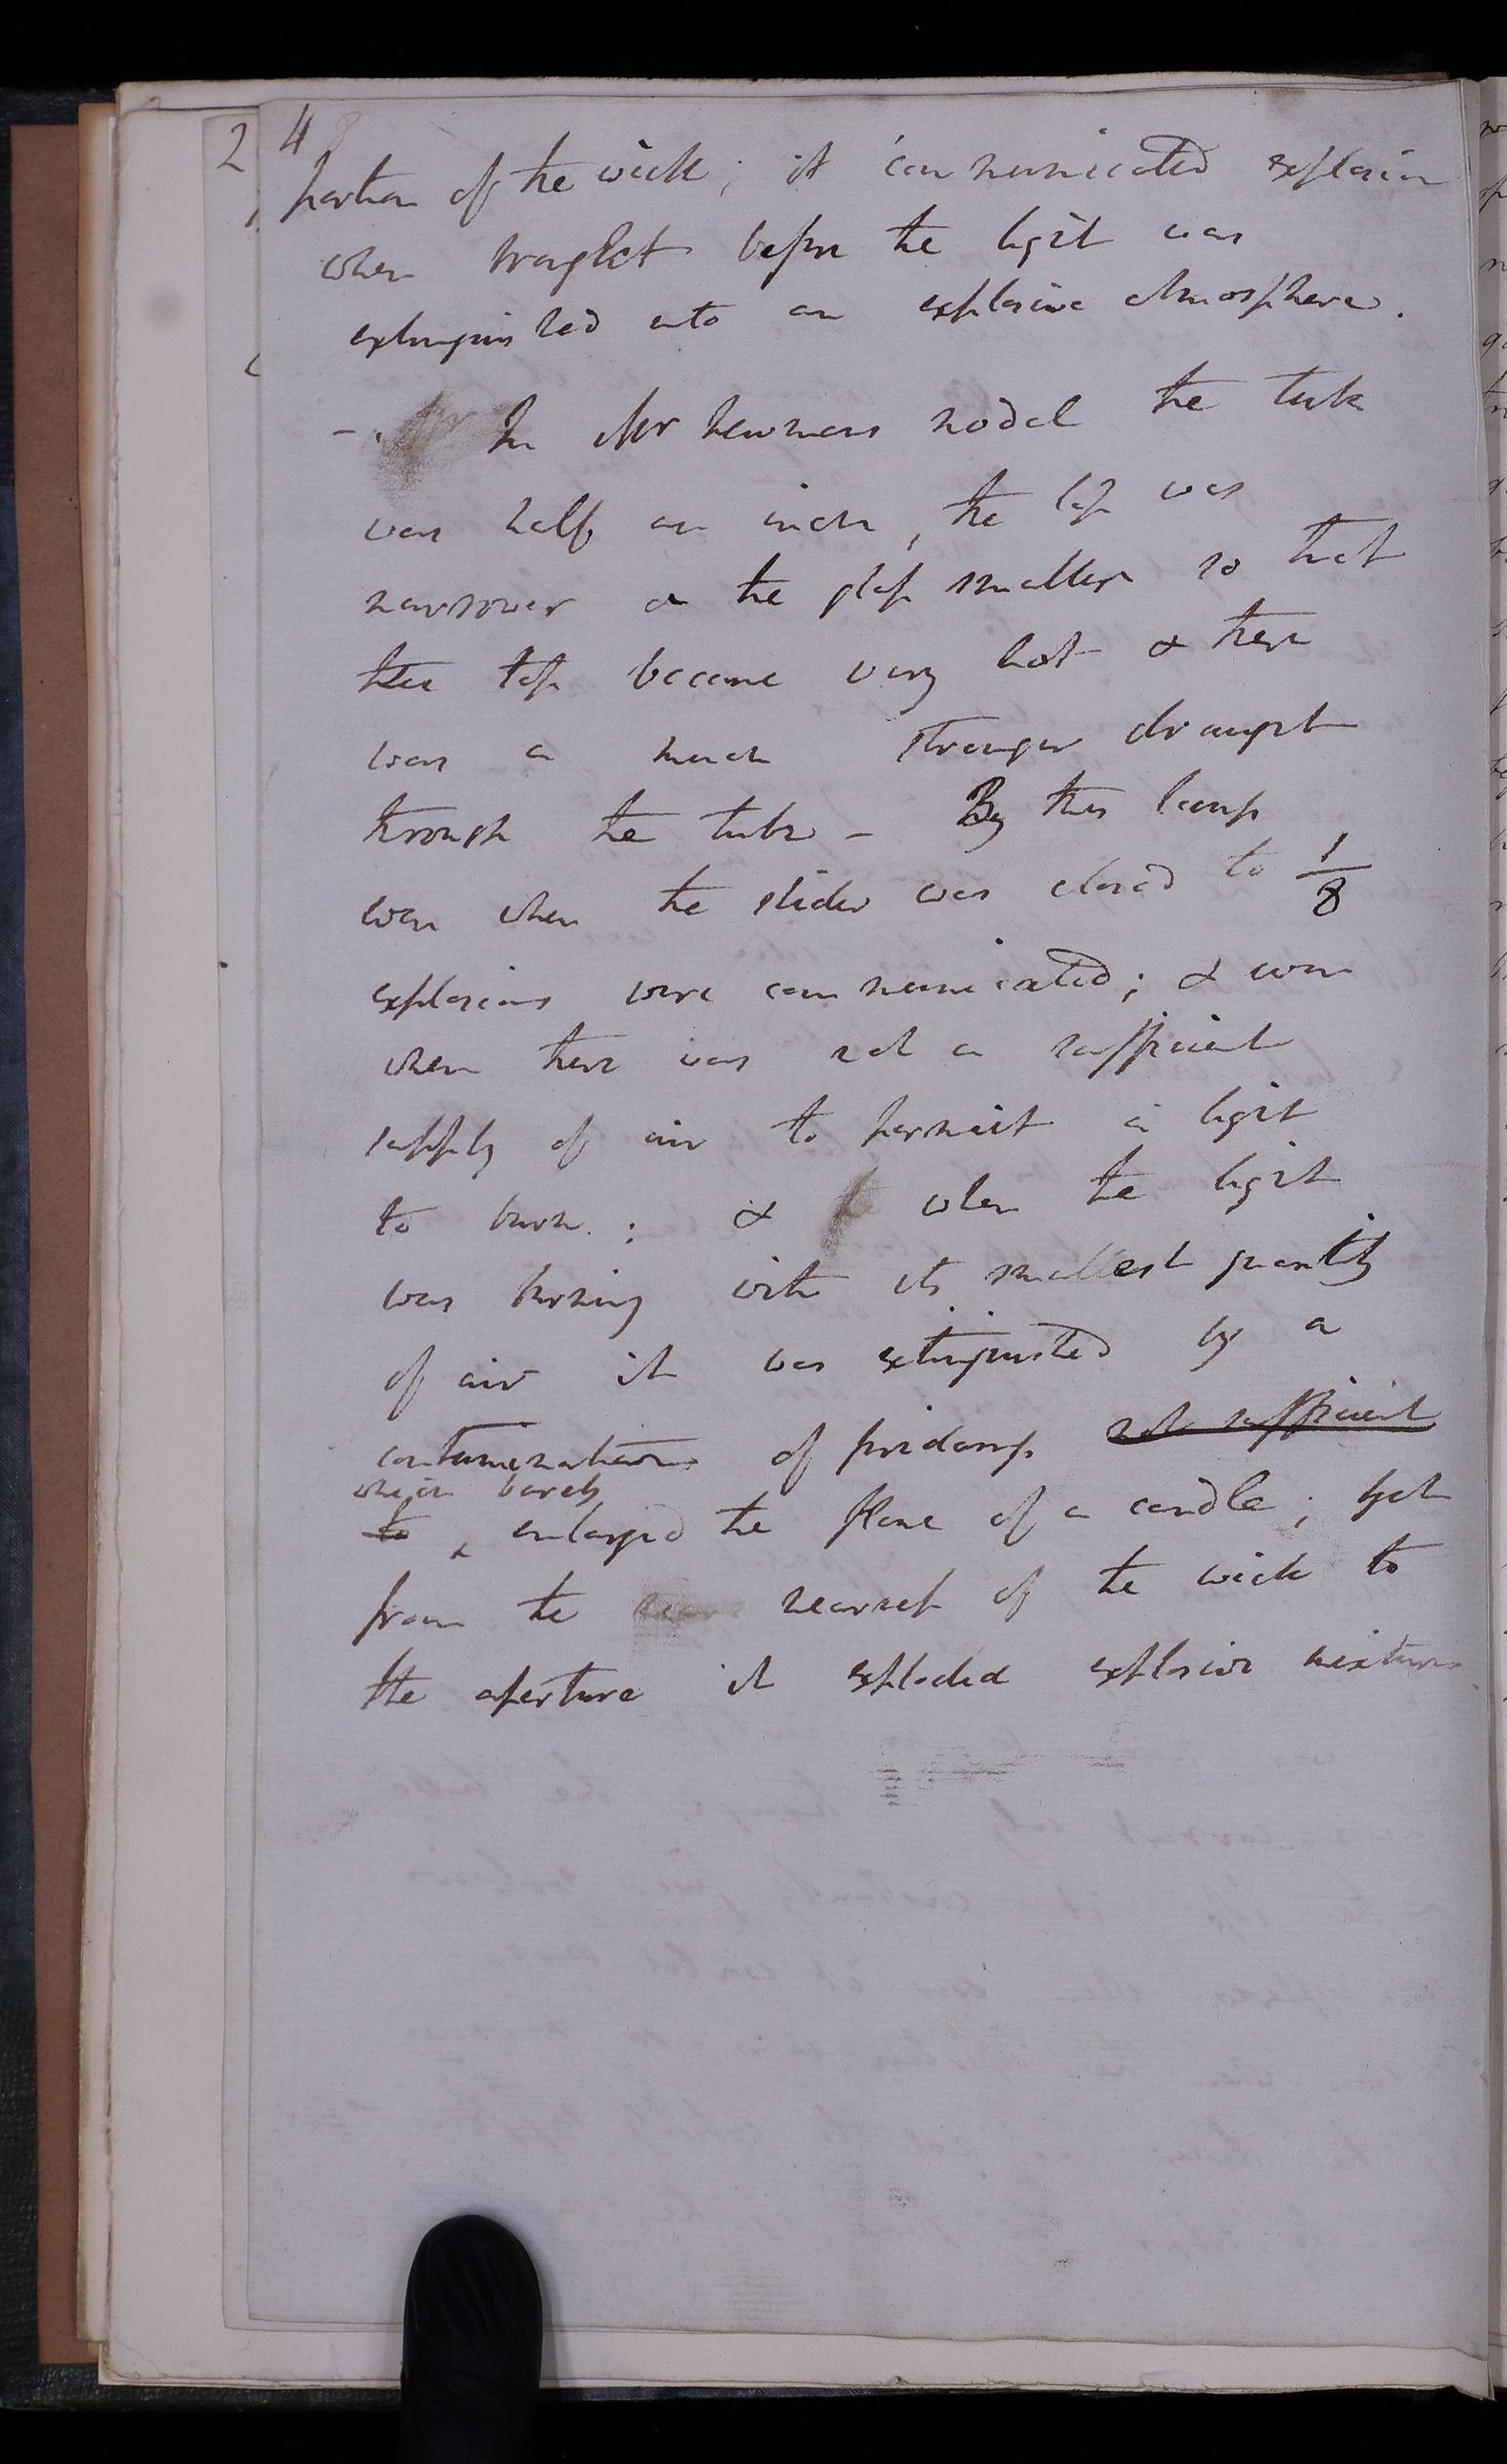 2 4
portion of the wick; it communicated explosion
when brought before the light was
extinguished into an explosive atmosphere.
- In Mr Newmans model the tube
was half an inch, the top was
narrower & the glass smaller so that
the top became very hot & there
was a much stronger draught
through the tube - By this lamp
even when the slider was closed to 1/8
explosions were communicated; & even
when there was not a sufficient
supply of air to permit a light
to burn.: & when the light
was burning with its smallest quantity
of air it was extinguished by a
contamination of firedamp not sufficient
which barely
to enlarged the flame of a candle; yet
from the nearness of the wick to
the aperture it exploded explosive mixtures